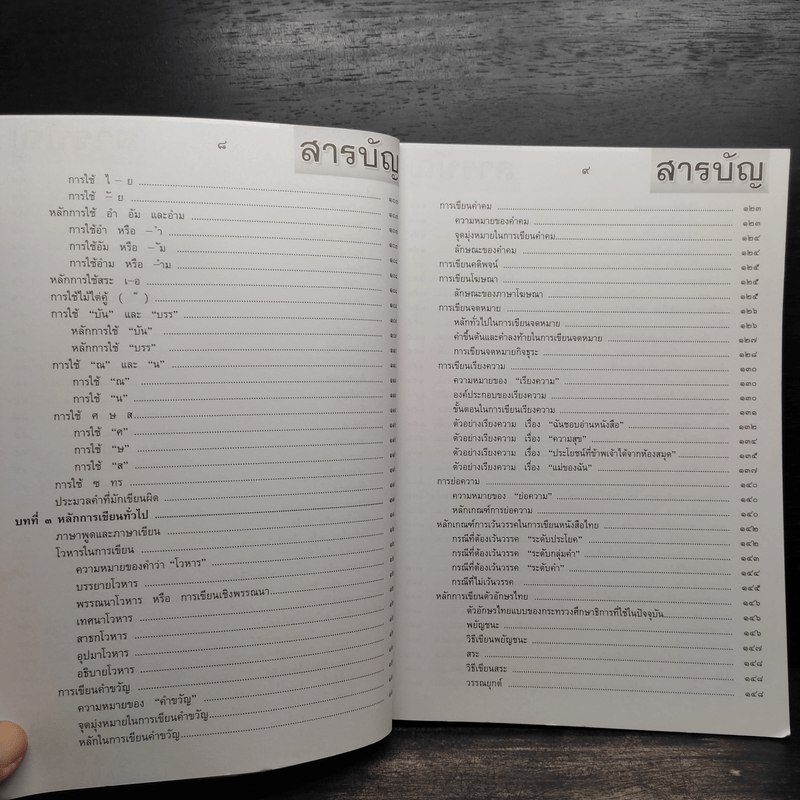 ๘
สารบัญ
การใช้ ไ – ย
การใช้ – ั ย
หลักการใช้ อำ อัม และอำม
การใช้อำ หรือ – ำ
การใช้อัม หรือ – ั ม
การใช้อำม หรือ – ำม
หลักการใช้สระ เ–อ
การใช้ไม้ไต่คู้ ( ็ )
การใช้ “บัน” และ “บรร”
หลักการใช้ “บัน”
หลักการใช้ “บรร”
การใช้ “ณ” และ “น”
การใช้ “ณ”
การใช้ “น”
การใช้ ศ ษ ส
การใช้ “ศ”
การใช้ “ษ”
การใช้ “ส”
การใช้ ซ ทร
ประมวลคำที่มักเขียนผิด
บทที่ ๓ หลักการเขียนทั่วไป
ภาษาพูดและภาษาเขียน
โวหารในการเขียน
ความหมายของคำว่า “โวหาร”
บรรยายโวหาร
พรรณนาโวหาร หรือ การเขียนเชิงพรรณนา
เทศนาโวหาร
สาธกโวหาร
อุปมาโวหาร
อธิบายโวหาร
การเขียนคำขวัญ
ความหมายของ “คำขวัญ”
จุดมุ่งหมายในการเขียนคำขวัญ
หลักในการเขียนคำขวัญ
๙
สารบัญ
การเขียนคำคม ๑๒๓
ความหมายของคำคม ๑๒๓
จุดมุ่งหมายในการเขียนคำคม ๑๒๔
ลักษณะของคำคม ๑๒๔
การเขียนคติพจน์ ๑๒๕
การเขียนโฆษณา ๑๒๕
ลักษณะของภาษาโฆษณา ๑๒๕
การเขียนจดหมาย ๑๒๖
หลักทั่วไปในการเขียนจดหมาย ๑๒๖
คำขึ้นต้นและคำลงท้ายในการเขียนจดหมาย ๑๒๗
การเขียนจดหมายกิจธุระ ๑๒๘
การเขียนเรียงความ ๑๓๐
ความหมายของ “เรียงความ” ๑๓๐
องค์ประกอบของเรียงความ ๑๓๐
ขั้นตอนในการเขียนเรียงความ ๑๓๑
ตัวอย่างเรียงความ เรื่อง “ฉันชอบอ่านหนังสือ” ๑๓๒
ตัวอย่างเรียงความ เรื่อง “ความสุข” ๑๓๔
ตัวอย่างเรียงความ เรื่อง “ประโยชน์ที่ข้าพเจ้าได้จากห้องสมุด” ๑๓๕
ตัวอย่างเรียงความ เรื่อง “แม่ของฉัน” ๑๓๗
การย่อความ ๑๔๐
ความหมายของ “ย่อความ” ๑๔๐
หลักเกณฑ์การย่อความ ๑๔๐
หลักเกณฑ์การเว้นวรรคในการเขียนหนังสือไทย ๑๔๒
กรณีที่ต้องเว้นวรรค “ระดับประโยค” ๑๔๒
กรณีที่ต้องเว้นวรรค “ระดับกลุ่มคำ” ๑๔๓
กรณีที่ต้องเว้นวรรค “ระดับคำ” ๑๔๔
กรณีที่ไม่เว้นวรรค ๑๔๕
หลักการเขียนตัวอักษรไทย ๑๔๖
ตัวอักษรไทยแบบของกระทรวงศึกษาธิการที่ใช้ในปัจจุบัน ๑๔๖
พยัญชนะ ๑๔๖
วิธีเขียนพยัญชนะ ๑๔๗
สระ ๑๔๘
วิธีเขียนสระ ๑๔๘
วรรณยุกต์ ๑๔๘